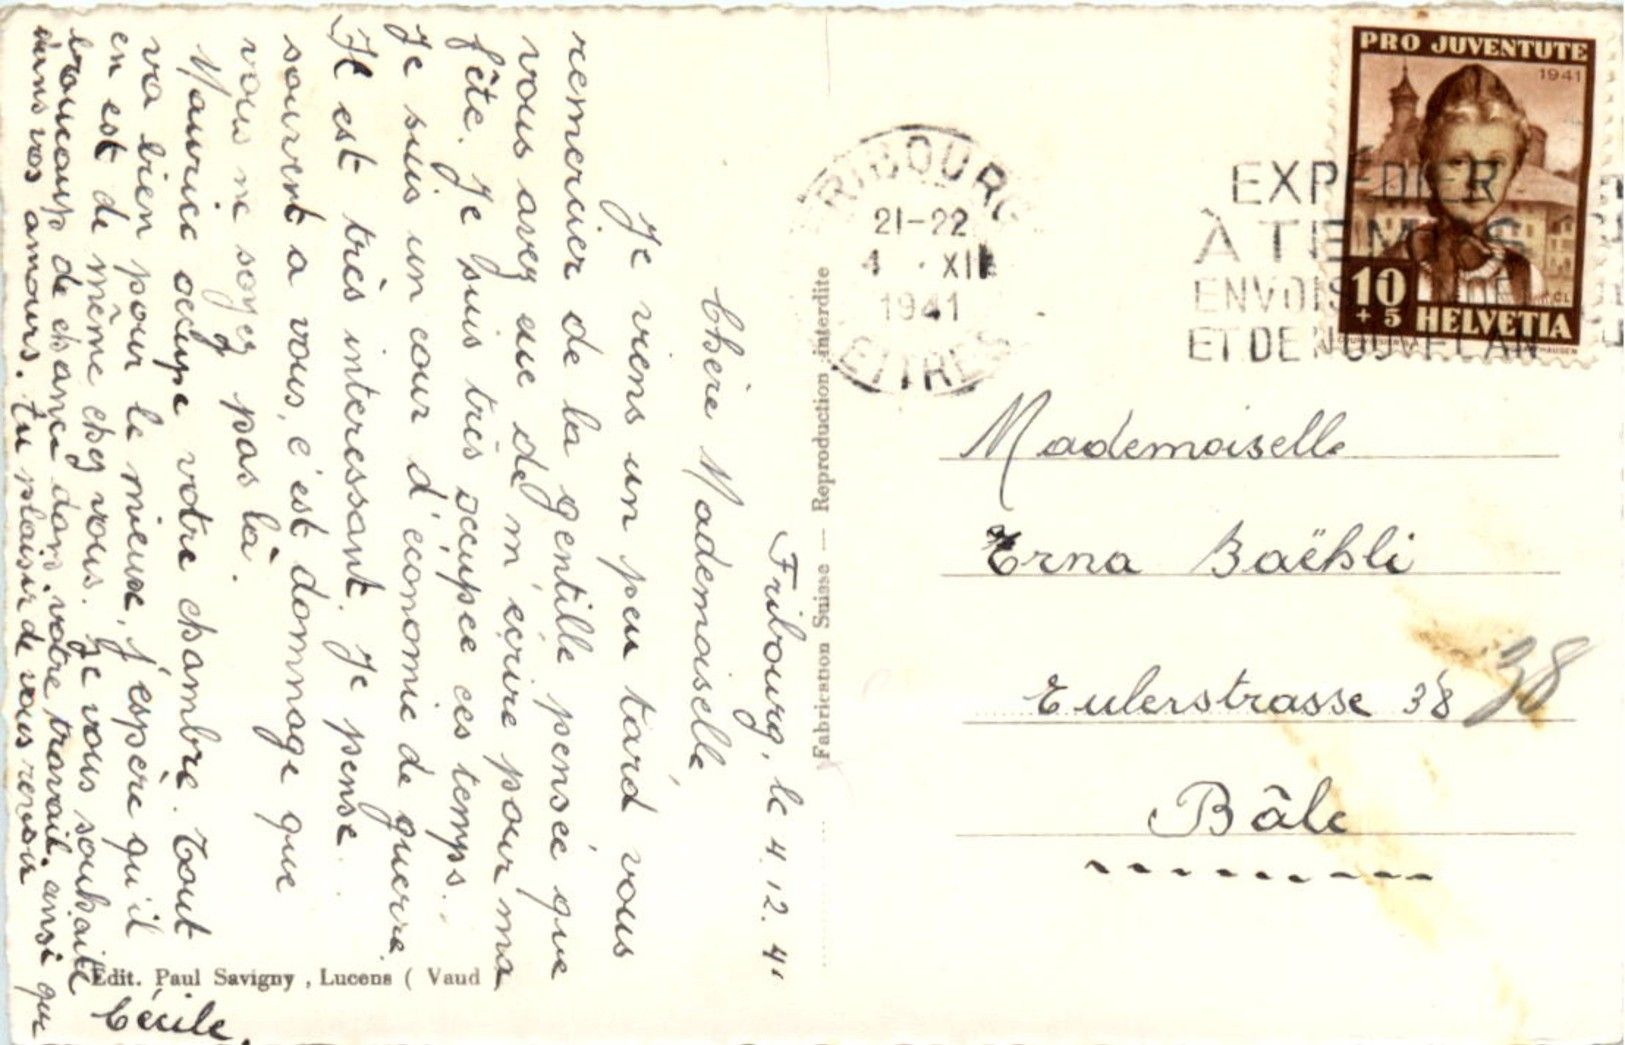 Fribourg, le 4.12.41
Chère Mademoiselle
Je viens un peu tard vous
remercier de la gentille pensée que
vous avez eue de m'écrire pour ma
fête. Je suis très occupée ces temps.
Je suis un cour d'économie de guerre
Il est très interessant. Je pense
souvent a vous, c'est dommage que
vous ne soyez pas là.
Maurice occupe votre chambre. Tout
va bien pour le mieux, j'espère qu'il
en est de même chez vous. Je vous souhaite
beaucoup de chance dans votre travail ainsi que
dans vos amours. Au plaisir de vous revoir
Cécile.
Edit. Paul Savigny, Lucens ( Vaud )
Fabrication Suisse — Reproduction interdite
FRIBOURG
21-22
4 · XII
1941
LETTRES
EXPÉDIER
À TEMPS
ENVOIS DE
ET DE NOUVEL AN
PRO JUVENTUTE
1941
10
+ 5
HELVETIA
Mademoiselle
Erna Baëhli
Eulerstrasse 38
38
Bâle